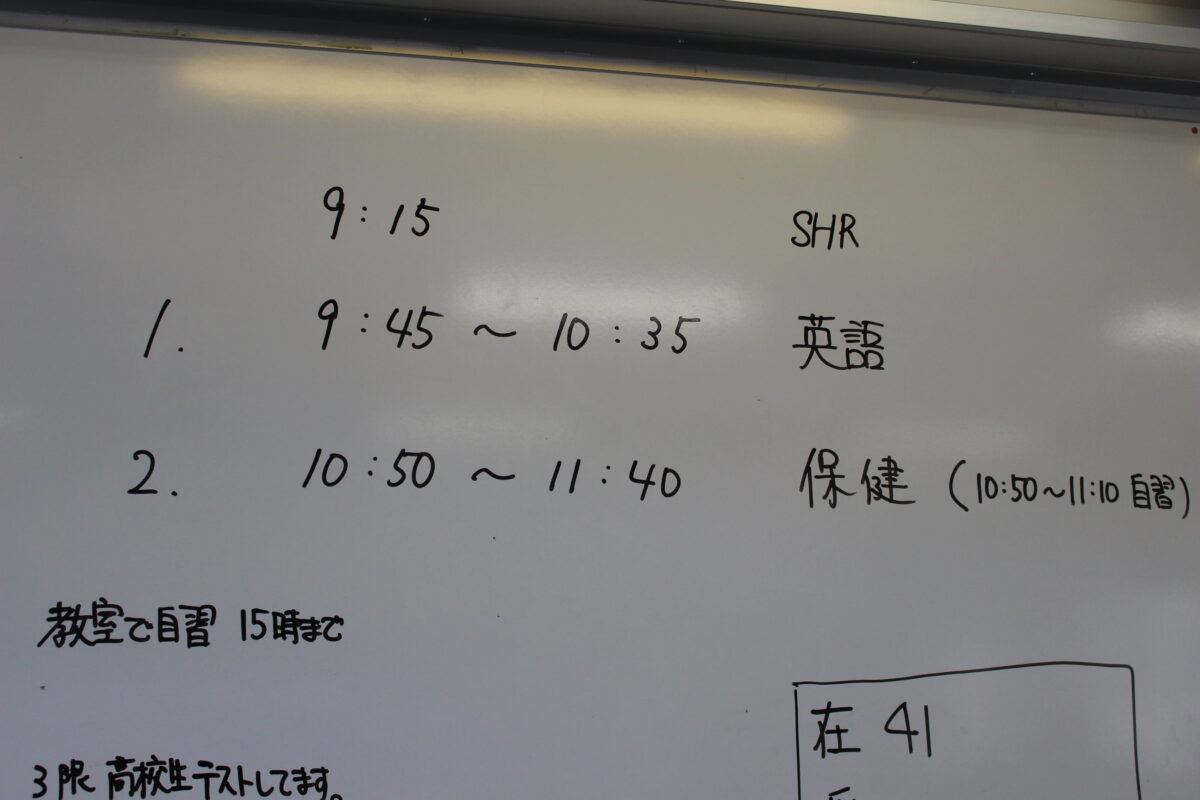 9:15 SHR
1. 9:45 ～ 10:35 英語
2. 10:50 ～ 11:40 保健 (10:50～11:10 自習)
教室で自習 15時まで
在 41
3限 高校生テストしてます。